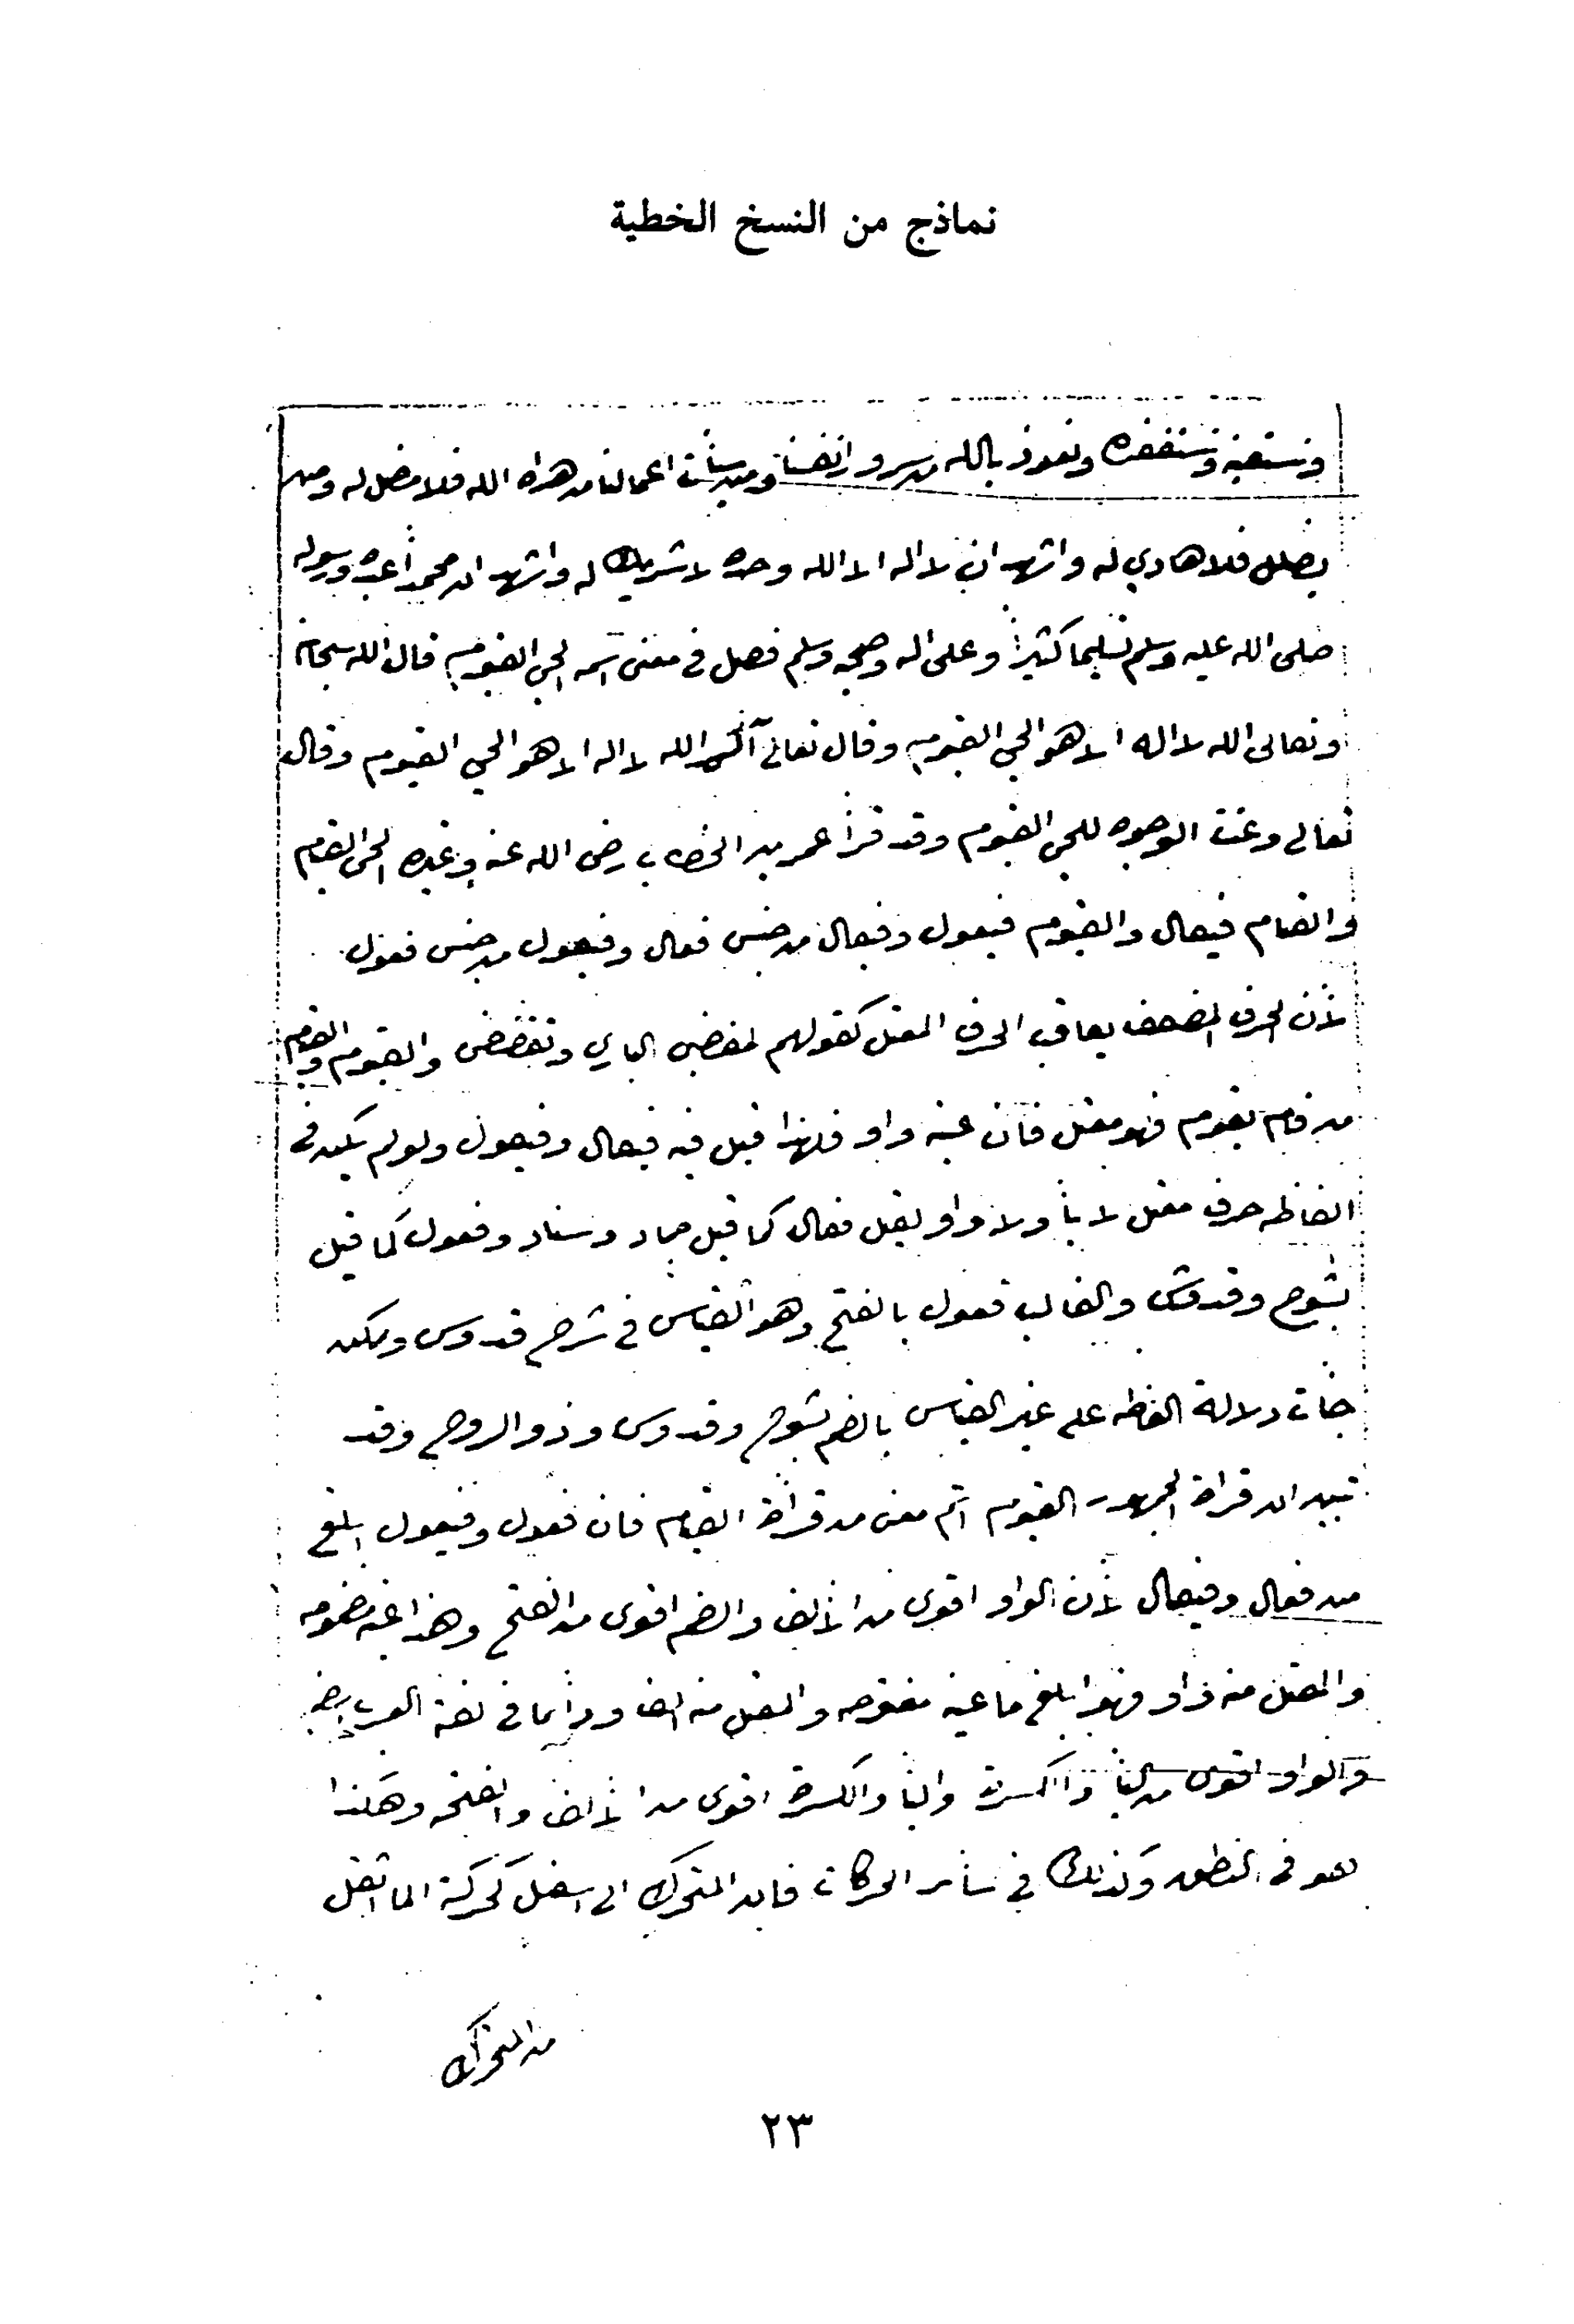 نماذج من النسخ الخطية
ونستعينه ونستغفره ونعوذ بالله من شرور انفسنا ومن سيئات اعمالنا من هداه الله فلا مضل له ومن
يضلل فلا هادي له واشهد ان لا اله الا الله وحده لا شريك له واشهد ان محمداً عبده ورسوله
صلى الله عليه وسلم تسليما كثيراً وعلى اله وصحبه وسلم فصل في معنى اسمه الحي القيوم قال الله سبحانه
وتعالى الله لا اله الا هو الحي القيوم وقال تعالى آلم الله لا اله الا هو الحي القيوم وقال
تعالى وعنت الوجوه للحي القيوم وقد قرأ عمر بن الخطاب رضي الله عنه وغيره الحي القيام
والقيام فيعال والقيوم فيعول وفيعال من جنس فعال وفيعول من جنس فعول
لأن الحرف المضعف يعاقب الحرف المعتل كقولهم تقضى البازي وتقضض والقيوم والقيام
من قام يقوم فهو معتل فان عينه واو فلهذا قيل فيه فيعال وفيعول ولو لم يكن في
الفاظه حرف معتل لا ياً ولا واو لقيل فعال كما قيل حماد وستار وفعول كما قيل
سبوح وقدوس والغالب فعول بالفتح وهو القياس في قدوس ولكن
جات دلالة الفظه على غير القياس بالضم سبوح وقدوس وذو الروح وقد
تبين ان قراة الجمهور القيوم اتم معنى من قرأة القيام فان فعول وفيعول ابلغ
من فعال وفيعال لأن الواو اقوى من الألف والضم اقوى من الفتح وهذا عينه مضمومه
والمعتل منه واو فهو ابلغ مما عينه مفتوحه والمعتل منه الف ودائما في لغة العرب الضم
والواو اقوى من اليأ والكسرة واليأ والكسرة اقوى من الألف والفتحه وهكذا
هو في النطق وكذلك في سائر الحركات فان المتحرك الى اسفل كحركة الما اثقل
من المتحرك
٢٣